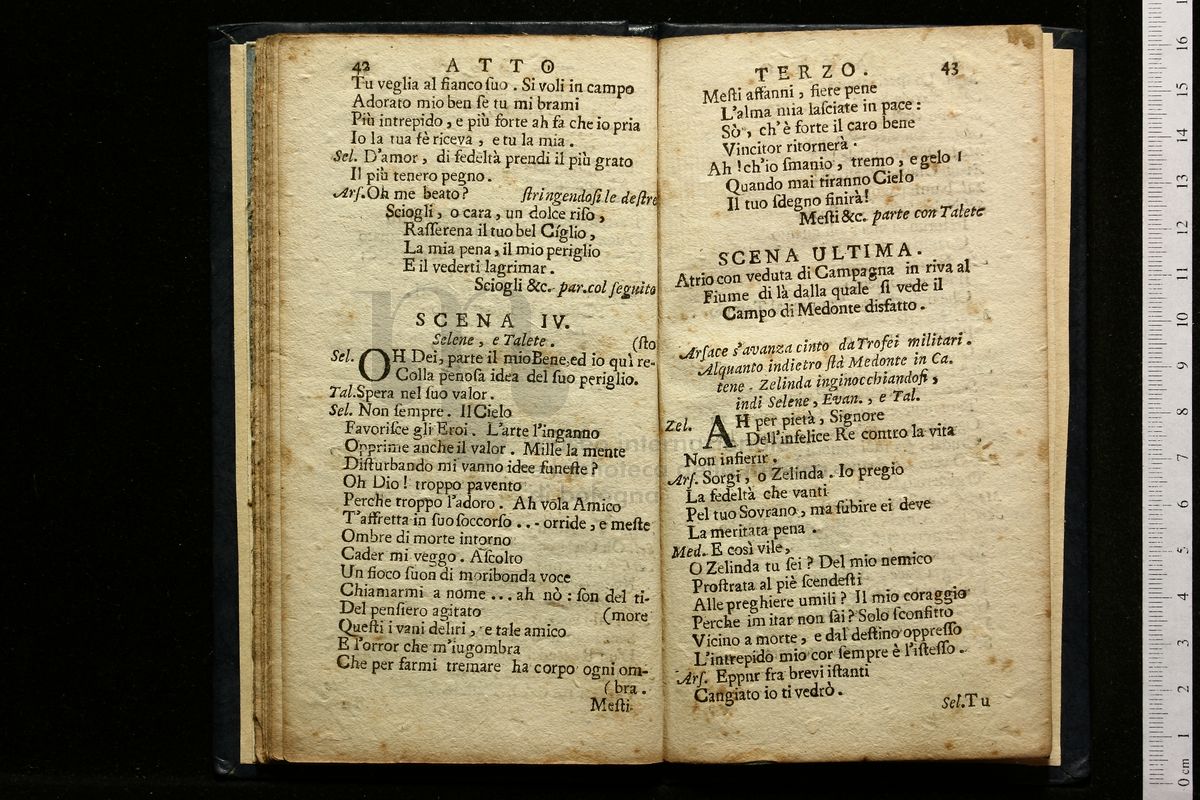 42 ATTO
Tu veglia al fianco ſuo . Si voli in campo
Adorato mio ben ſe tu mi brami
Più intrepido , e più forte ah fa che io pria
Io la tua fè riceva , e tu la mia .
Sel. D'amor , di fedeltà prendi il più grato
Il più tenero pegno .
Arſ. Oh me beato? ſtringendoſi le deſtre
Sciogli , o cara , un dolce riſo ,
Raſſerena il tuo bel Cíglio ,
La mia pena , il mio periglio
E il vederti lagrimar .
Sciogli &c. par.col ſeguito
SCENA IV.
Selene , e Talete . (ſto
Sel. OH Dei, parte il mio Bene, ed io quì re-
Colla penoſa idea del ſuo periglio.
Tal. Spera nel ſuo valor .
Sel. Non ſempre . Il Cielo
Favoriſce gli Eroi . L'arte l'inganno
Opprime anche il valor . Mille la mente
Diſturbando mi vanno idee funeſte ?
Oh Dio ! troppo pavento
Perche troppo l'adoro . Ah vola Amico
T'affretta in ſuo ſoccorſo . . - orride , e meſte
Ombre di morte intorno
Cader mi veggo . Aſcolto
Un fioco ſuon di moribonda voce
Chiamarmi a nome . . . ah nò : ſon del ti-
Del penſiero agitato (more
Queſti i vani deliri , e tale amico
E l'orror che m'iugombra
Che per farmi tremare ha corpo ogni om-
(bra .
Meſti
TERZO . 43
Meſti affanni , fiere pene
L'alma mia laſciate in pace :
Sò , ch'è forte il caro bene
Vincitor ritornerà .
Ah ! ch'io ſmanio , tremo , e gelo !
Quando mai tiranno Cielo
Il tuo ſdegno finirà!
Meſti &c. parte con Talete
SCENA ULTIMA .
Atrio con veduta di Campagna in riva al
Fiume di là dalla quale ſi vede il
Campo di Medonte disfatto .
Arſace s'avanza cinto da Trofei militari .
Alquanto indietro ſtà Medonte in Ca.
tene . Zelinda inginocchiandoſi ,
indi Selene , Evan. , e Tal.
Zel. AH per pietà , Signore
Dell'infelice Re contro la vita
Non infierir .
Arſ. Sorgi , o Zelinda . Io pregio
La fedeltà che vanti
Pel tuo Sovrano , ma ſubire ei deve
La meritata pena .
Med. E così vile ,
O Zelinda tu ſei ? Del mio nemico
Proſtrata al piè ſcendeſti
Alle preghiere umili ? Il mio coraggio
Perche im itar non ſai ? Solo ſconfitto
Vicino a morte , e dal deſtino oppreſſo
L'intrepido mio cor ſempre è l'iſteſſo .
Arſ. Eppur fra brevi iſtanti
Cangiato io ti vedrò .
Sel. Tu